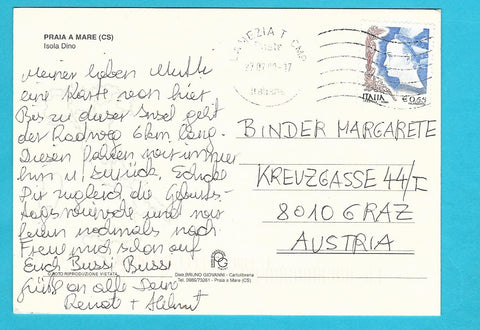 PRAIA A MARE (CS)
Isola Dino
Meiner lieben Mutti
eine Karte von hier
Bis zu dieser Insel geht
der Radweg 6km lang.
Diesen fahren wir immer
hin u zurück. Schicke
Dir zugleich die Geburts-
tagswünsche und wir
feiern nochmals nach.
Freue mich schon auf
Euch Bussi Bussi
Grüße an alle Dein
Renate + Helmut
LAMEZIA T. CMP
ITALIA € 0,45
BINDER MARGARETE
KREUZGASSE 44/I
8010 GRAZ
AUSTRIA
FOTO RIPRODUZIONE VIETATA
Ditta BRUNO GIOVANNI - Cartolibreria
Tel. 0985/73261 - Praia a Mare (CS)